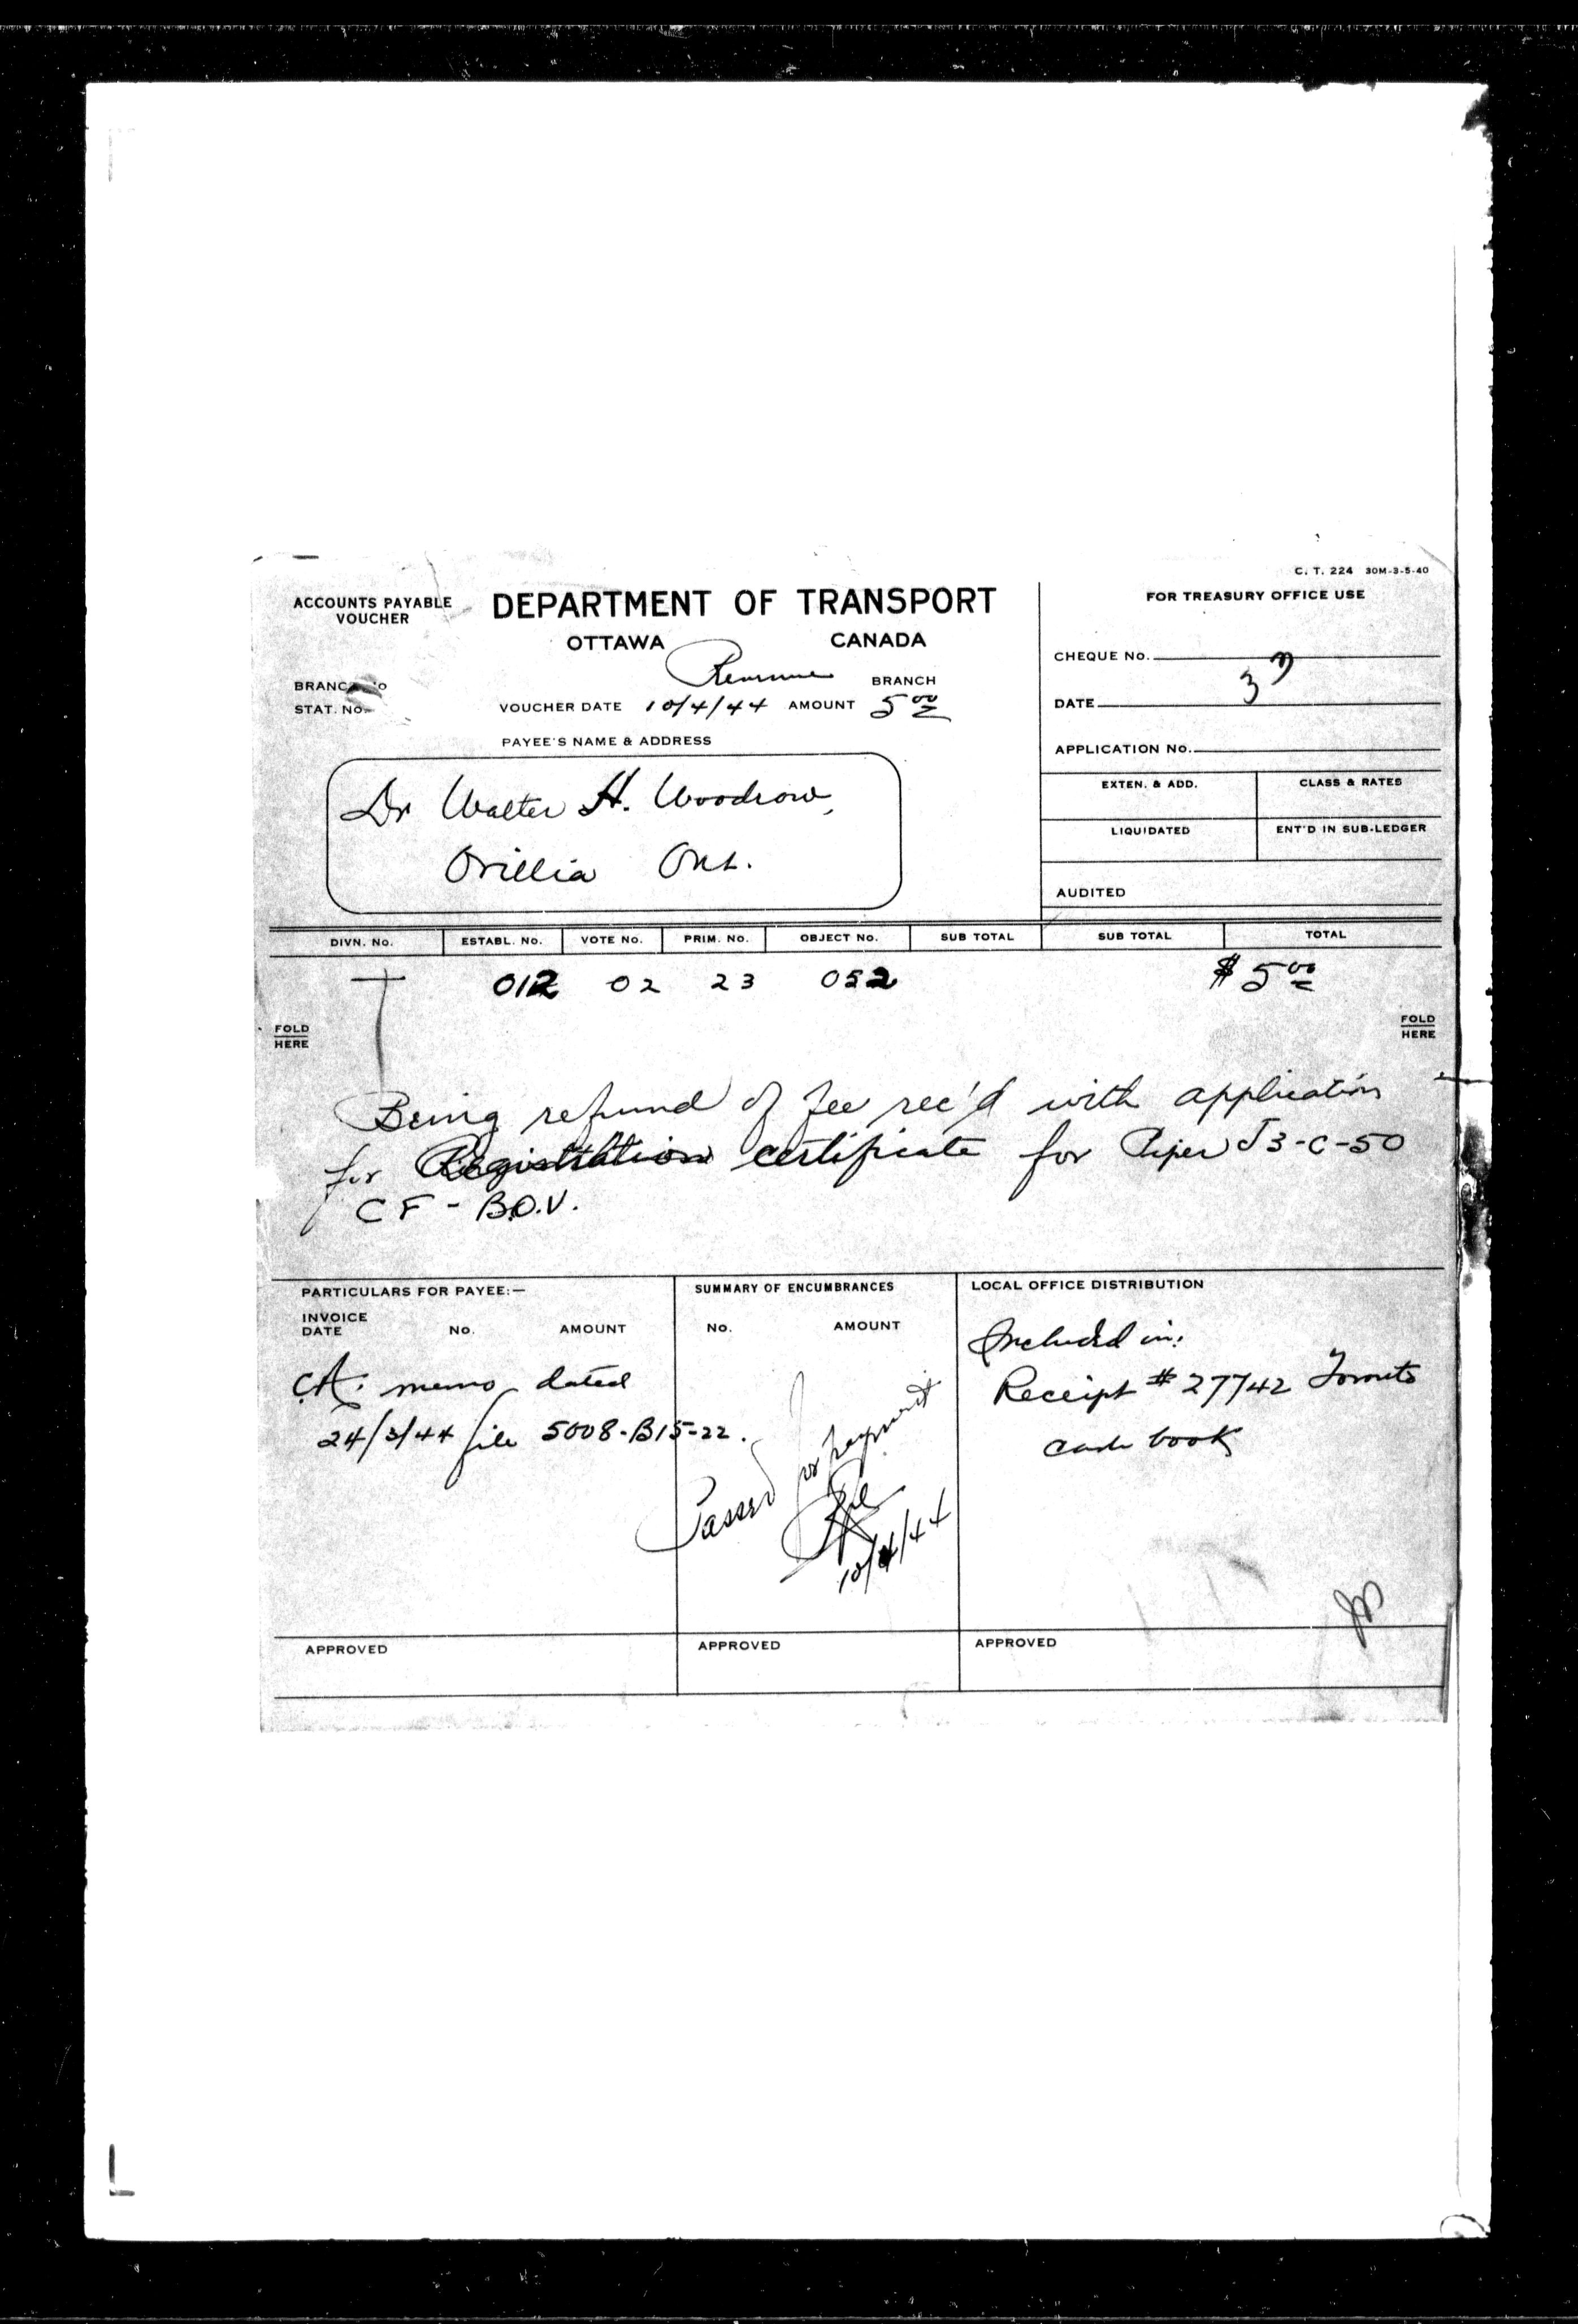 C. T. 224 30M-3-5-40
ACCOUNTS PAYABLE
VOUCHER
DEPARTMENT OF TRANSPORT
OTTAWA CANADA
Revenue BRANCH
BRANCH
STAT. No.
VOUCHER DATE 10/4/44 AMOUNT 5 00
PAYEE'S NAME & ADDRESS
Dr Walter H. Woodrow,
Orillia Ont.
FOR TREASURY OFFICE USE
CHEQUE No.
DATE
APPLICATION No.
EXTEN. & ADD. CLASS & RATES
LIQUIDATED ENT'D IN SUB-LEDGER
AUDITED
DIVN. No. ESTABL. No. VOTE No. PRIM. No. OBJECT No. SUB TOTAL SUB TOTAL TOTAL
012 02 23 052 $ 5 00
FOLD
HERE
FOLD
HERE
Being refund of fee rec'd with application
for Registration certificate for Piper J3-C-50
CF - B.O.V.
PARTICULARS FOR PAYEE:—
INVOICE
DATE No. AMOUNT
C.A. memo dated
24/3/44 file 5008-B15-22.
APPROVED
SUMMARY OF ENCUMBRANCES
No. AMOUNT
Passed for payment
10/4/44
APPROVED
LOCAL OFFICE DISTRIBUTION
Included in:
Receipt # 27742 Toronto
cash book
APPROVED